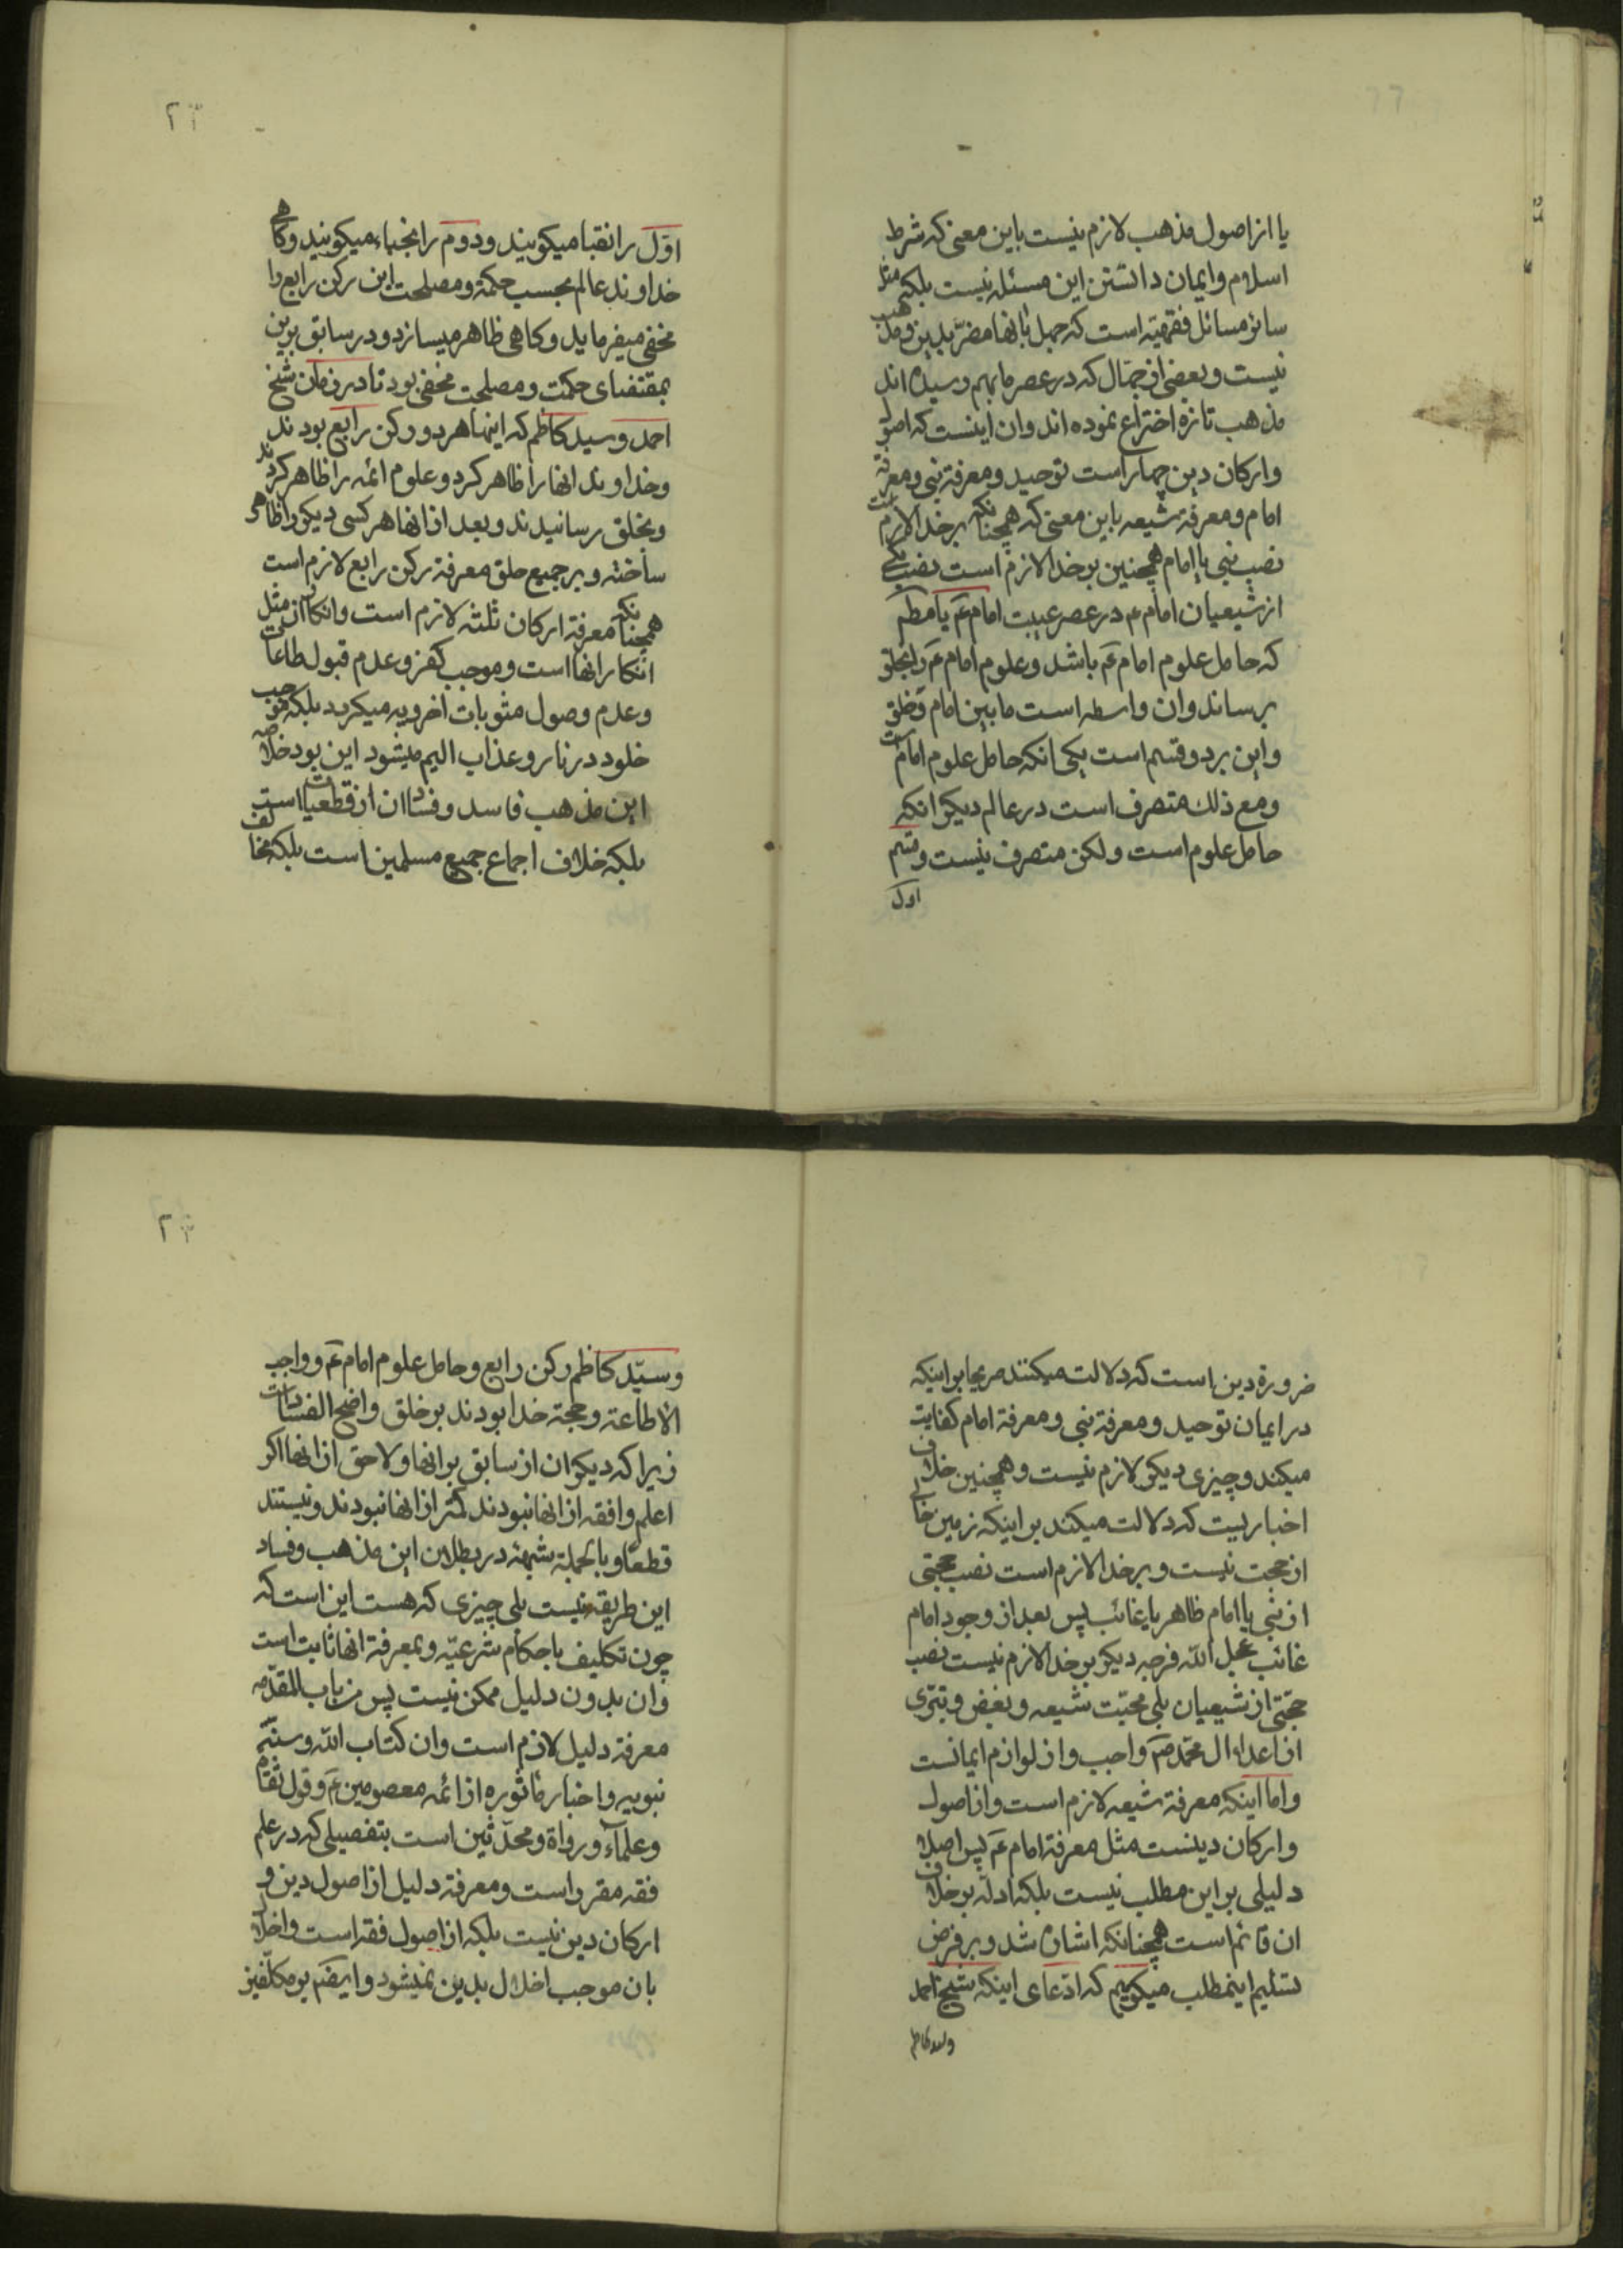 یا از اصول مذهب لازم نیست باین معنی که شرط
اسلام و ایمان دانستن این مسئله نیست بلکه مثل
سائر مسائل فقهیّه است که جهل بانها مضرّ بدین و مذهب
نیست و بعضی از جهّال که در عصر ما بهم رسیده اند
مذهب تازه اختراع نموده اند و ان اینست که اصول
و ارکان دین چهار است توحید و معرفة نبی و معرفة
امام و معرفة شیعه باین معنی که همچنانکه بر خدا لازم است
نصب نبی یا امام همچنین بر خدا لازم است نصب یکی
از شیعیان امام ع در عصر غیبت امام ع یا مطلقا
که حامل علوم امام ع باشد و علوم امام ع را بخلق
برساند و ان واسطه است مابین امام و خلق
و این بر دو قسم است یکی انکه حامل علوم امام است
و مع ذلک متصرف است در عالم دیکر انکه
حامل علوم است ولکن متصرف نیست و قسم
اول
۲۲
اوّل را نقبا میکویند و دوم را نجباء میکویند و کاهی
خداوند عالم بحسب حکمة و مصلحت این رکن رابع را
مخفی میفرماید و کاهی ظاهر میسازد و در سابق برین
بمقتضای حکمت و مصلحت مخفی بود تا در زمان شیخ
احمد و سید کاظم که اینها هر دو رکن رابع بودند
و خداوند انها را ظاهر کرد و علوم ائمه را ظاهر کردند
و بخلق رسانیدند و بعد از انها هر کسی دیکر را ظاهر
ساخته و بر جمیع خلق معرفة رکن رابع لازم است
همچنانکه معرفة ارکان ثلثه لازم است و انکار ان مثل
انکار انها است و موجب کفر و عدم قبول طاعات
و عدم وصول مثوبات اخرویه میکردد بلکه موجب
خلود در نار و عذاب الیم میشود این بود خلاصه
این مذهب فاسد و فساد ان از قطعیات است
بلکه خلاف اجماع جمیع مسلمین است بلکه مخالف
ضرورة دین است که دلالت میکنند صریحا بر اینکه
در ایمان توحید و معرفة نبی و معرفة امام کفایت
میکند و چیزی دیکر لازم نیست و همچنین خلاف
اخباریست که دلالت میکند بر اینکه زمین خالی
از حجت نیست و بر خدا لازم است نصب حجّتی
از نبی یا امام ظاهر یا غائب پس بعد از وجود امام
غائب عجل الله فرجه دیکر بر خدا لازم نیست نصب
حجّتی از شیعیان بلی محبّت شیعه و بغض و تبرّی
از اعداء ال محمد ص واجب و از لوازم ایمانست
و اما اینکه معرفة شیعه لازم است و از اصول
و ارکان دینست مثل معرفة امام ع پس اصلا
دلیلی بر این مطلب نیست بلکه ادلّه بر خلاف
ان قائم است همچنانکه اشاره شد و بر فرض
تسلیم اینمطلب میکوییم که ادّعای اینکه شیخ احمد
و سید کاظم
۲۳
و سیّد کاظم رکن رابع و حامل علوم امام ع و واجب
الاطاعة و حجة خدا بودند بر خلق واضح الفساد است
زیرا که دیکران از سابق بر انها و لاحق از انها اکر
اعلم و افقه از انها نبودند کمتر از انها نبودند و نیستند
قطعًا و بالجملة شبهۀ در بطلان این مذهب و فساد
این طریقه نیست بلی چیزی که هست این است که
چون تکلیف باحکام شرعیّه و بمعرفة انها ثابت است
و ان بدون دلیل ممکن نیست پس من باب المقدّمه
معرفة دلیل لازم است و ان کتاب الله و سنّة
نبویه و اخبار ماثوره از ائمه معصومین ع و قول ثقات
و علمآء و رواة و محدّثین است بتفصیلی که در علم
فقه مقرر است و معرفة دلیل از اصول دین و
ارکان دین نیست بلکه از اصول فقه است و اخلال
بان موجب اخلال بدین نمیشود و ایضًا بر مکلّفین